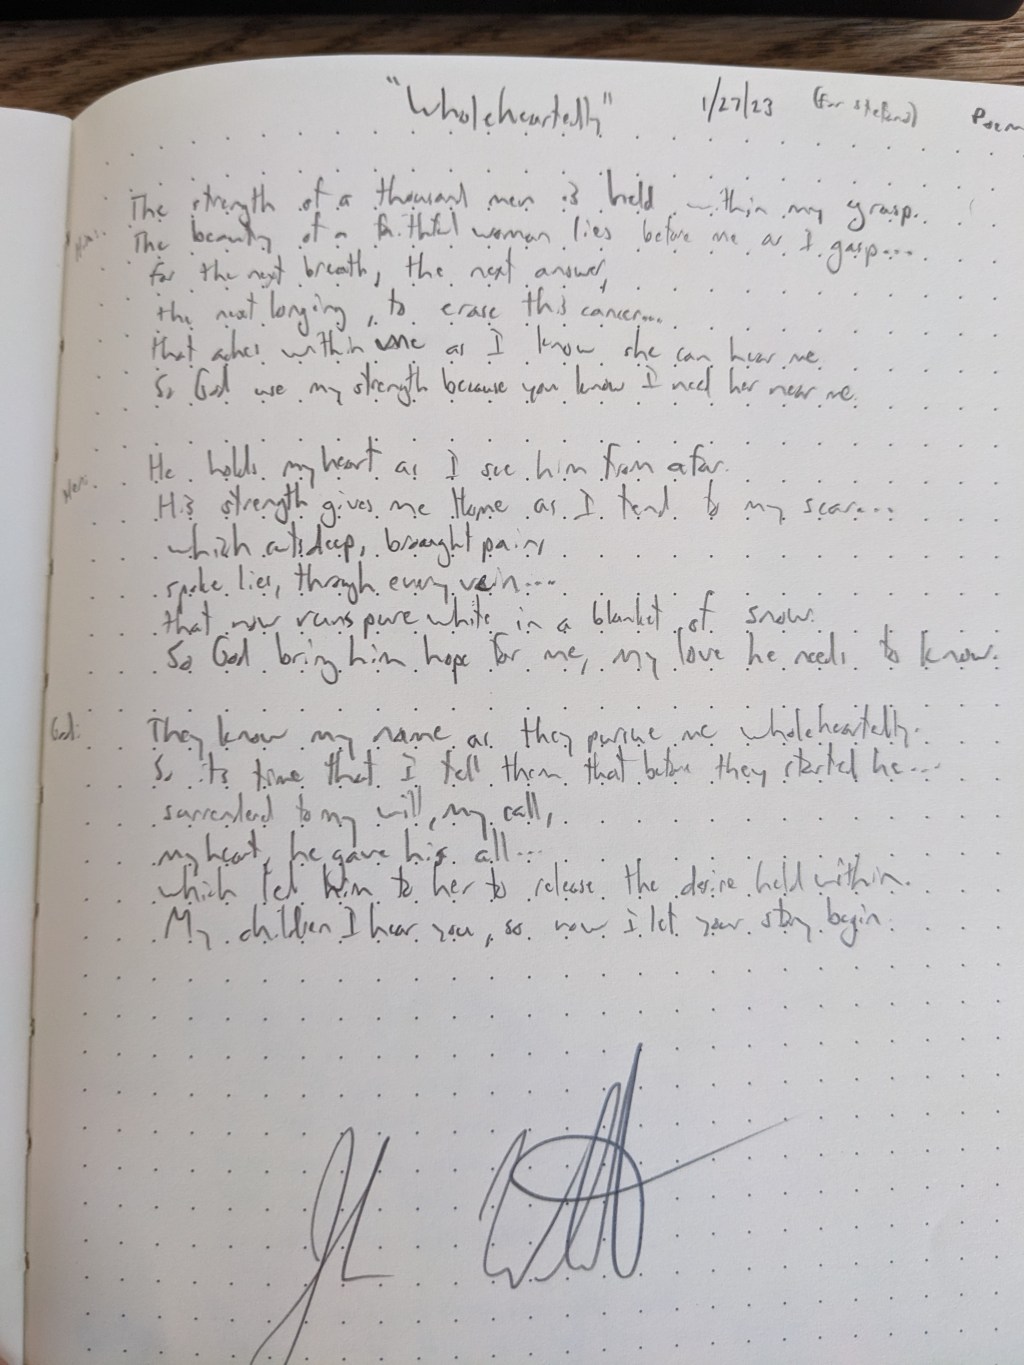 "Wholeheartedly" 1/27/23 (For Stefano) Poem
The strength of a thousand men is held within my grasp.
The beauty of a faithful woman lies before me as I gasp...
for the next breath, the next answer,
the next longing, to erase this cancer...
that aches within me as I know she can hear me.
So God use my strength because you know I need her near me.
Her: He holds my heart as I see him from afar.
His strength gives me Home as I tend to my scar...
which cuts deep, brought pain,
spoke lies, through every vein...
that now runs pure white in a blanket of snow.
So God bring him hope for me, my love he needs to know.
God: They know my name as they pursue me wholeheartedly.
So its time that I tell them that before they started he...
surrendered to my will, my call,
my heart, he gave his all...
which led him to her to release the desire held within.
My children I hear you, so now I let your story begin.